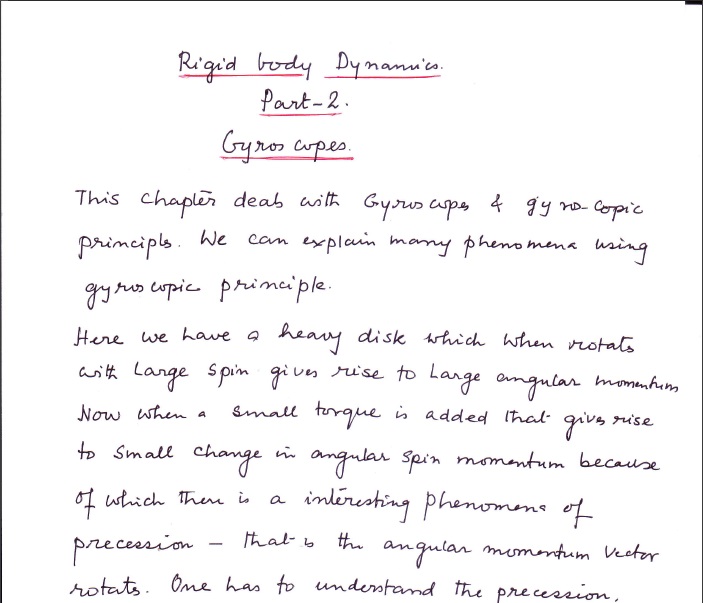 Rigid body Dynamics.
Part-2.
Gyroscopes.
This chapter deals with Gyroscopes & gyroscopic
principles. We can explain many phenomena using
gyroscopic principle.
Here we have a heavy disk which when rotates
with Large spin gives rise to Large angular momentum
Now when a small torque is added that gives rise
to small change in angular spin momentum because
of which there is a interesting phenomena of
precession – that is the angular momentum vector
rotates. One has to understand the precession.